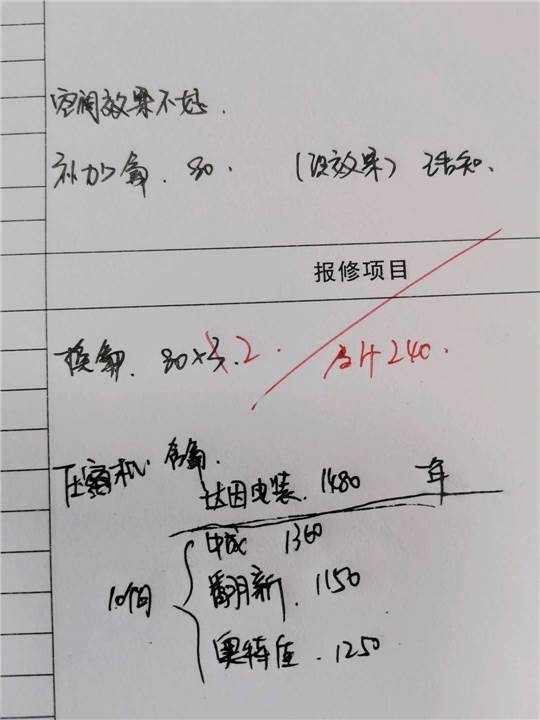 空调效果不好.
补加氟. 80. (没效果) 已告知.
报修项目
换氟. 80×3. 2. 合计240.
压缩机. 含氟.
达因电装. 1480 一年
中成 1360
10个月
翻新. 1150
奥特佳. 1250